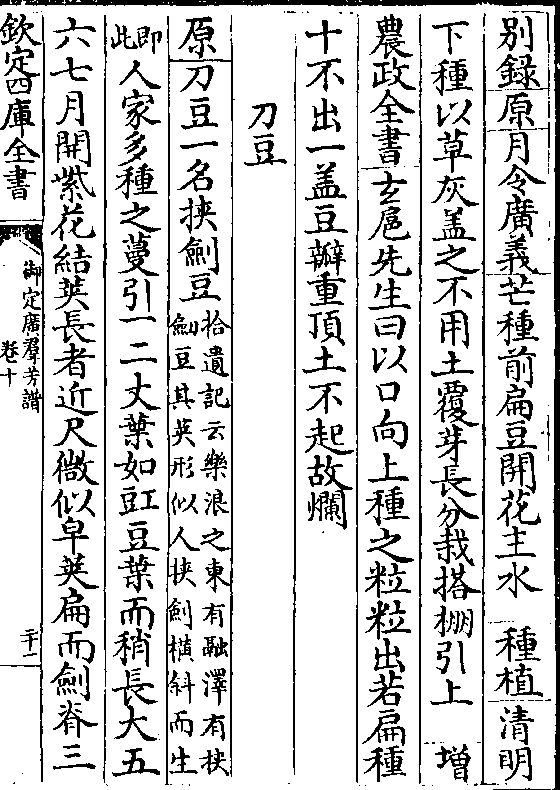 别錄原月令廣義芒種前扁豆開花主水　種植清明
下種以草灰盖之不用土覆芽長分栽搭棚引上　增
農政全書玄扈先生曰以口向上種之粒粒出若扁種
十不出一盖豆瓣重頂土不起故爛
刀豆
原刀豆一名挾劒豆拾遺記云樂浪之東有融澤有挾
劒豆其莢形似人挾劒横斜而生
即此人家多種之蔓引一二丈葉如豇豆葉而稍長大五
六七月開紫花結莢長者近尺微似皁莢扁而劒脊三
欽定四庫全書
御定廣羣芳譜
卷十